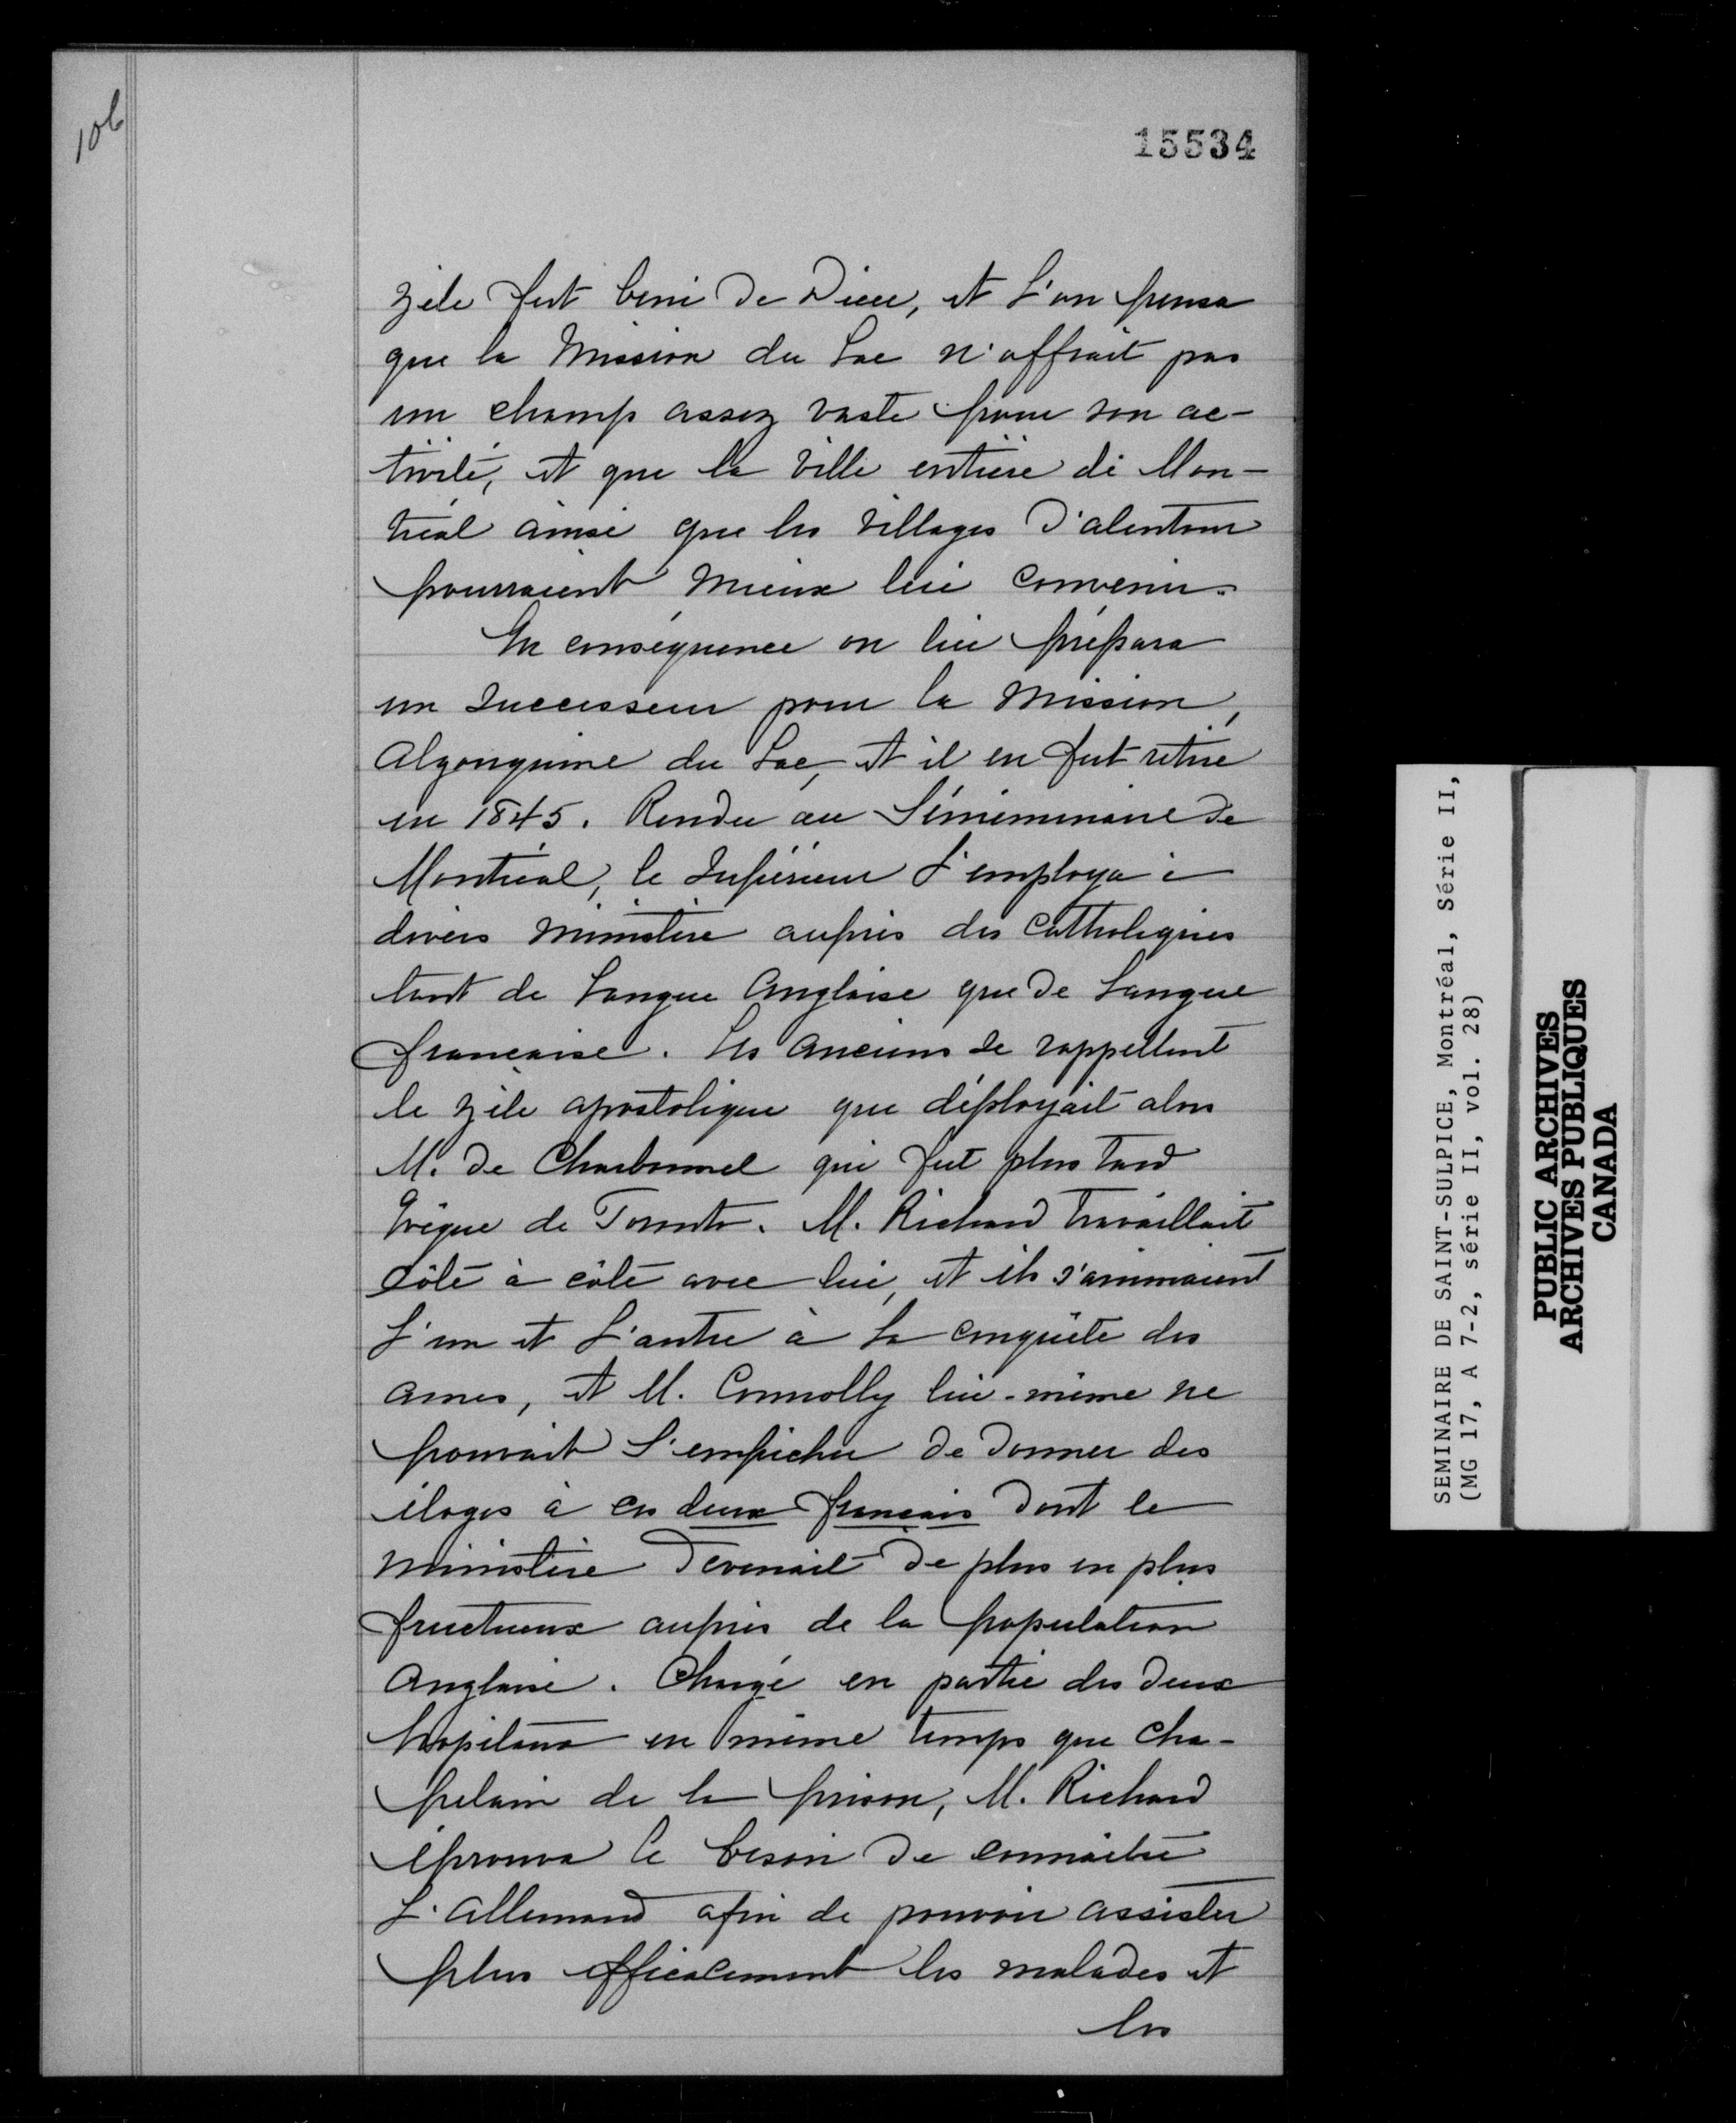 106
15534
zèle fut béni de Dieu, et l'on pensa
que la Mission du Lac n'offrait pas
un champ assez vaste pour son ac-
tivité, et que la ville entière de Mon-
tréal ainsi que les villages d'alentour
pourraient mieux lui convenir.
En conséquence on lui prépara
un Successeur pour la Mission
Algonquine du Lac, et il en fut retiré
en 1845. Rendu au Séminminaire de
Montréal, le Supérieur l'employa à
divers ministère auprès des Catholiques
tant de Langue Anglaise que de Langue
française. Les Anciens se rappellent
le zèle apostolique que déployait alors
M. de Charbonnel qui fut plus tard
Evêque de Toronto. M. Richard travaillait
côté à côté avec lui, et ils s'animaient
l'un et l'autre à la conquête des
ames, et M. Connolly lui-même ne
pouvait s'empêcher de donner des
éloges à ces deux français dont le
ministère devenait de plus en plus
fructueux auprès de la population
Anglaise. Chargé en partie des deux
hopitaux en même temps que cha-
pelain de la prison, M. Richard
éprouva le besoin de connaître
l'Allemand afin de pouvoir assister
plus efficacement les malades et
les
SEMINAIRE DE SAINT-SULPICE, Montréal, Série II,
(MG 17, A 7-2, série II, vol. 28)
PUBLIC ARCHIVES
ARCHIVES PUBLIQUES
CANADA